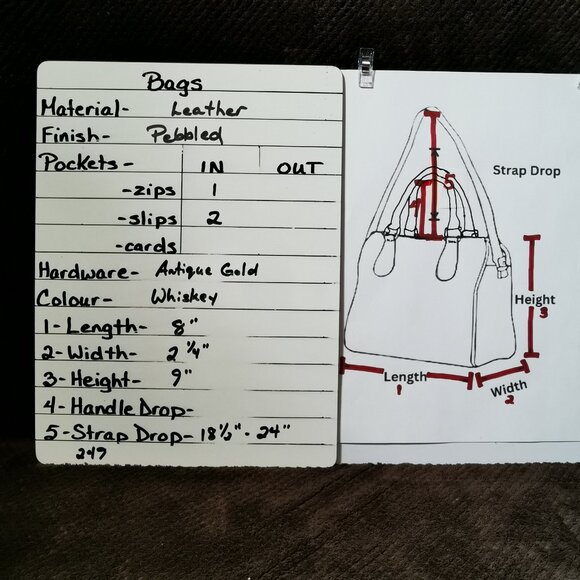 Bags
Material- Leather
Finish- Pebbled
Pockets- IN OUT
-zips 1
-slips 2
-cards
Hardware- Antique Gold
Colour- Whiskey
1-Length- 8"
2-Width- 2 1/4"
3-Height- 9"
4-Handle Drop-
5-Strap Drop- 18 1/2" - 24"
247
Strap Drop
5
4
Height
3
Length
1
Width
2